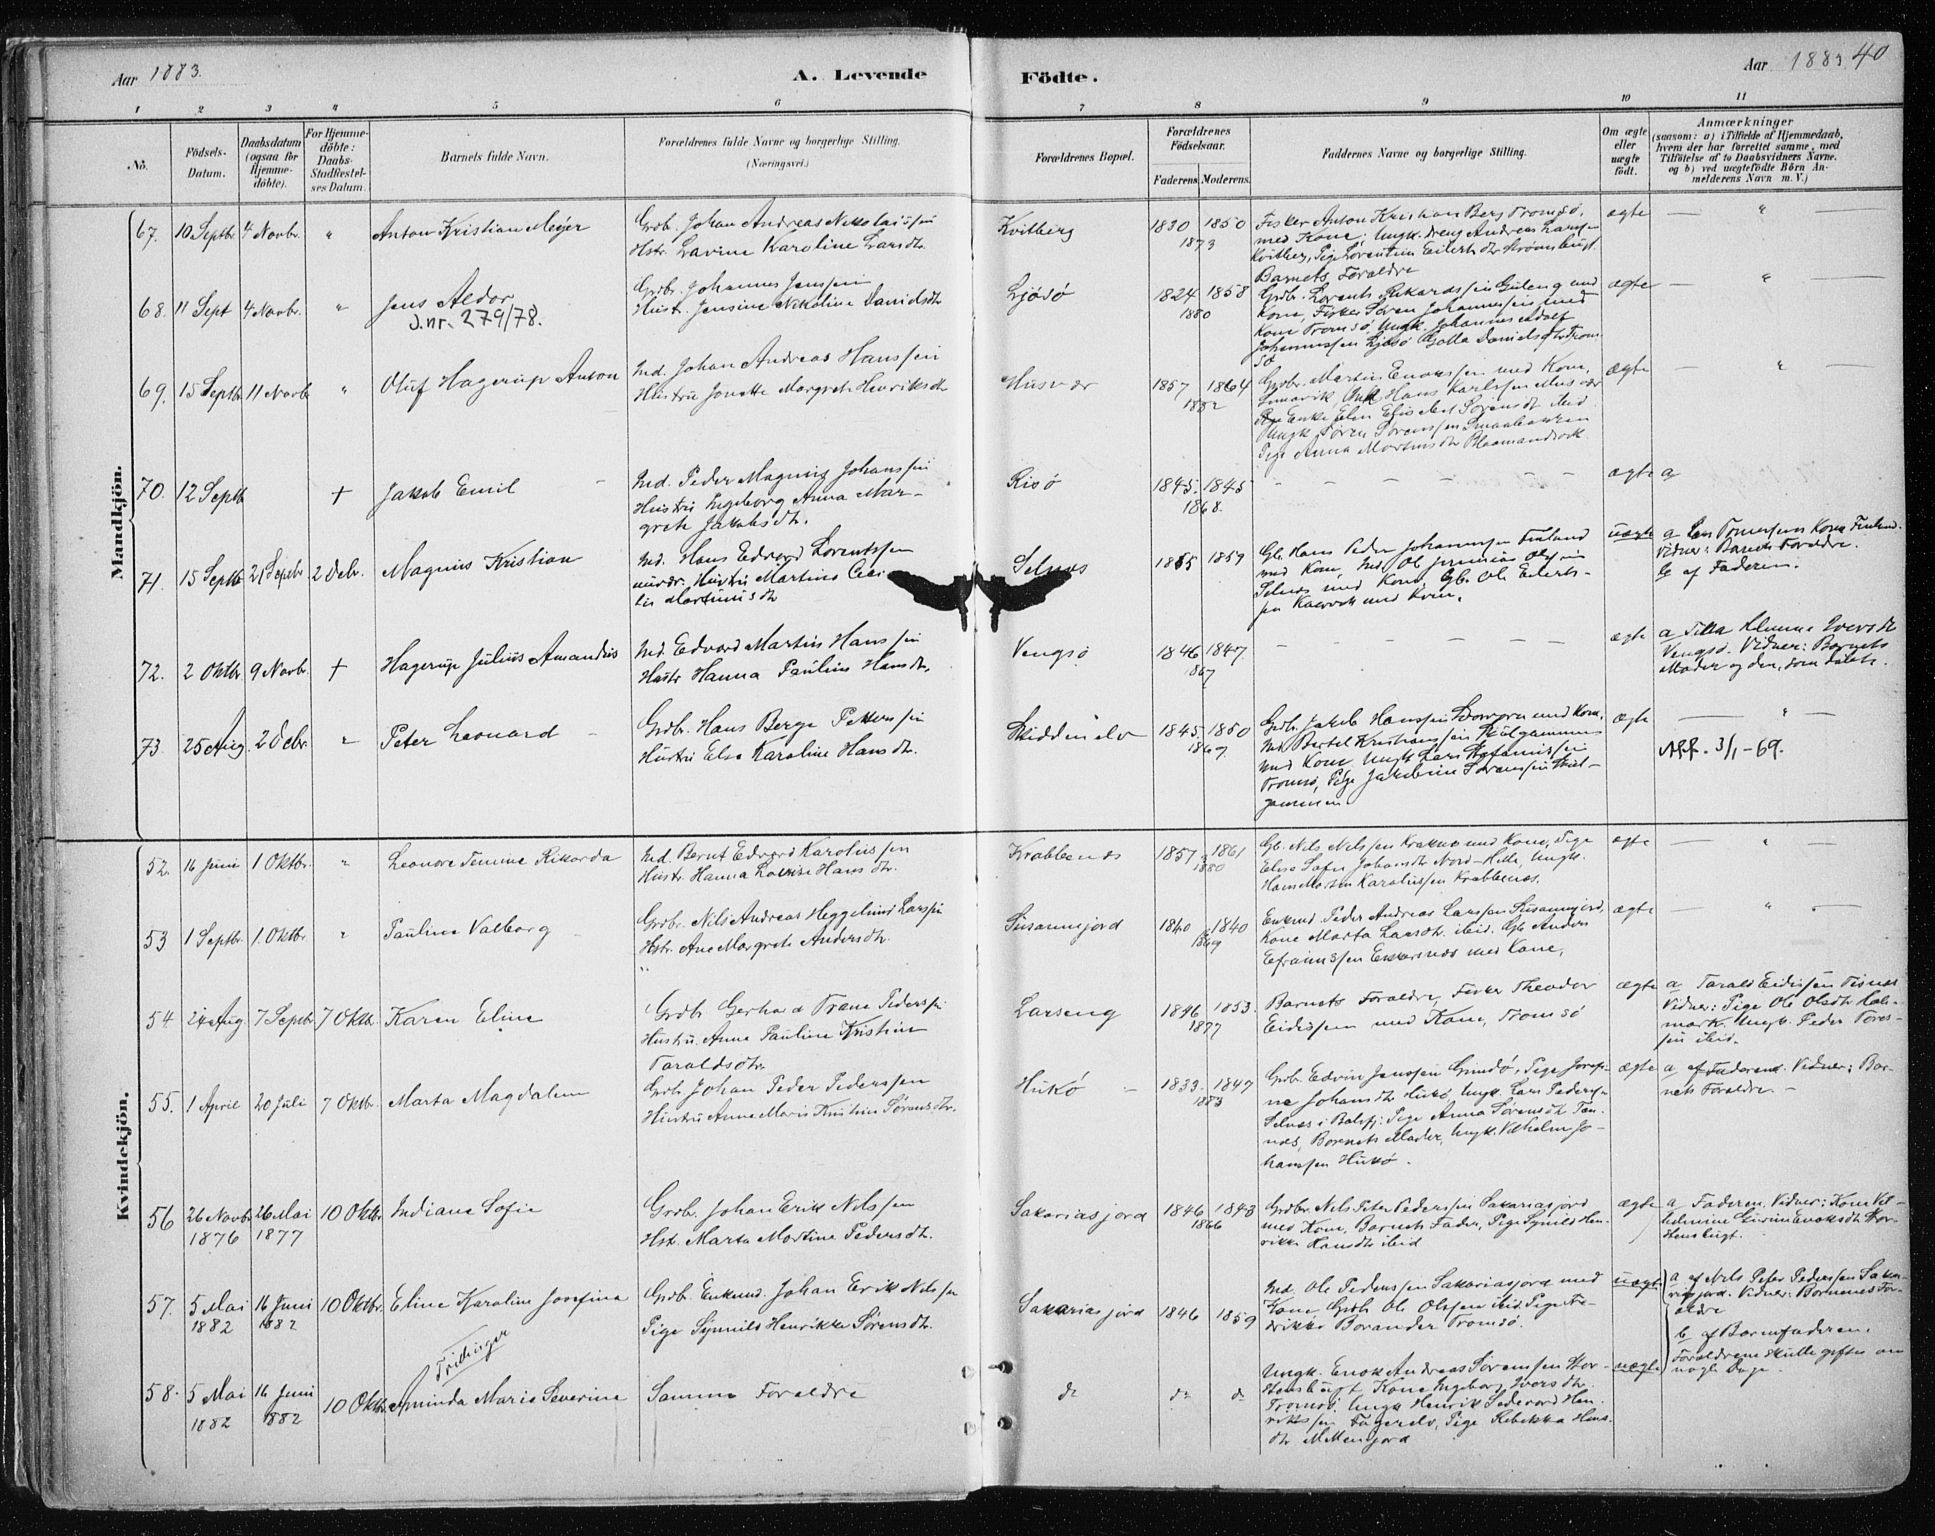 Aar 1883.
A. Levende Födte.
Aar 1883. 40
1 2 3 4 5 6 7 8 9 10 11
No.
Födsels-Datum.
Daabsdatum (ogsaa for Hjemmedöbte).
For Hjemmedöbte: Daabs-Stadfæstelses Datum.
Barnets fulde Navn.
Forældrenes fulde Navne og borgerlige Stilling.
(Næringsvei.)
Forældrenes Bopæl.
Forældrenes Födselsaar.
Faderens. Moderens.
Faddernes Navne og borgerlige Stilling.
Om ægte eller uægte födt.
Anmærkninger
(saasom: a) i Tilfælde af Hjemmedaab, hvem der har forrettet samme, med Tilföielse af to Daabsvidners Navne, og b) ved uægtefödte Börn Anmelderens Navn m. V.)
Mandkjön.
67. 10 Septbr 4 Novbr. " Anton Kristian Meyer
Grdb. Johan Andreas Nikolaissen
Hstr. Lavine Karoline Larsdtr.
Kvitberg 1830 1850
1873
Fisker Anton Kristian Berg Tromsø,
med Kone; Ungk. Dreng Andreas Larssen
Kvitberg, Pige Lorentine Eilertsdtr Strømsbugt
Barnets Forældre
ægte — " —
68. 11 Sept 4 Novbr. " Jens Aldor
J.nr. 279/78.
Grdb. Johannes Jenssen
Hustr. Jensine Nikoline Danielsdtr
Ljøsø 1824 1858
1880
Grdb. Lorents Rikardssen Guleng med
Kone, Fisker Søren Johannessen med
Kone Tromsø, Ungk. Johannes Adolf
Johannessen Ljøsø Danielsdtr Tromsø
ægte — " —
69. 15 Septbr 11 Novbr " Oluf Hagerup Anton
Ind. Johan Andreas Hanssen
Hustru Jonette Margrete Henriksdtr
Husvær 1857 1864
1882
Grdbr. Martin Enokssen med Kone,
Hans Karlssen Musvær
Enke Elen Elisabet Sørensdtr ibid
Ungk. Søren Sørenssen
Pige Anna Martinsdtr Blaamandsvik
ægte — " —
70. 12 Septb + Jakob Emil
Ind. Peder Magnus Johanssen
Hustru Ingeborg Anna Margrete Jakobsdtr.
Risø 1845. 1845
1868.
ægte a
71. 15 Septb 21 Septbr 2 Debr. Magnus Kristian
Ind. Hans Edvard Lorentssen
Hustru Martine
Martinusdtr
Selnes 1855 1859
Gb. Hans Peder Johannessen Finland
med Kone, Ind. Ole Olssen
Selnes med Kone, Gb. Ole Eilertssen
med Kone.
uægte a Kone Finland.
Vidner: Barnets Forældre.
b af Faderen.
72. 2 Oktbr 9 Novbr. + Hagerup Julius Amandus
Ind. Edvard Martin Hanssen
Hustr Hanna Pauline Hansdtr.
Vengsø 1846 1847.
1867
ægte a Iversdtr
Vengsø. Vidner: Barnets
Moder og den, som døbte.
73. 25 Aug. 2 Debr. " Peter Leonard
Grdb. Hans Berge Petterssen
Hustru Else Karoline Hansdtr.
Skiddenelv 1845. 1850
1869.
Grdb. Jakob Hanssen med Kone,
Ind. Bertel Kristianssen Skulgammen
med Kone, Ungk. Lars
Tromsø, Pige Jakobine Sørenssen Skulgammen
ægte — " —
Aff. 3/1-69.
Kvindekjön.
52. 16 Juni 1 Oktbr. " Leonore Jemine Rikarda
Ind. Bernt Edvard Karolissen
Hustr. Hanna Lovise Hansdtr.
Krabbenes 1857 1861
1880
Gb. Nils Nilssen Kraknes med Kone, Pige
Elise Sofie Johansdtr Nord-Hella, Ungk.
Hans Morten Karolissen Krabbenes.
ægte — " —
53 1 Septbr. 1. Oktbr. " Pauline Valborg
Grdbr. Nils Andreas Heggelund Larssen
Hstr. Ane Margrete Andersdtr.
Susannejord 1840 1840
1869
Enkmd. Peder Andreas Larssen Susannejord,
Kone Marta Larsdtr. ibid. Gb. Anders
Efraimssen med Kone.
ægte — " —
54 24 Aug. 7 Septbr 7 Oktbr. Karen Eline
Grdb Gerhard Trane Pederssen
Hustru. Anna Pauline Kristine
Taraldsdtr.
Larseng 1846 1853.
1877
Barnets Forældre, Fisker Theodor
Eidissen med Kone, Tromsø
ægte a Tarald Eidissen
Vidner: Pige Olsdtr
Ungk. Peder ibid.
55. 1 April 20 Juli 7 Oktbr. Marta Magdalena
Grdb. Johan Peder Pederssen
Hustru Anne Marie Kristine Sørensdtr.
Hukø 1833. 1847
1883
Grdb. Edvin Jenssen Grindø, Pige Josefine
Johansdtr Hukø, Ungk. Lars Pederssen
Selnes i Balsfj: Pige Anna Sørensdtr
Barnets Moder, Ungk. Vilhelm Johanssen Hukø.
ægte a af Faderen. Vidner: Barnets Forældre.
56 26 Novbr 26 Mai 10 Oktbr. Indiana Sofie
1876 1877
Grdb. Johan Erik Nilssen
Hst. Marta Martine Pedersdtr.
Sakariasjord 1846 1843
1866
Grdbr. Nils Peter Pederssen Sakariasjord
med Kone, Barnets Fader, Pige Synils Henrikke Hansdtr ibid
ægte a Faderen. Vidner: Kone Vilhelmine Enoksdtr Storstensbugt.
57. 5 Mai 16 Juni 10 Oktbr. Eline Karoline Josefine
1882 1882
Grdb. Enkmd. Johan Erik Nilssen
Pige Synnils Henrikke Sørensdtr.
Sakariasjord 1846 1859
Ind. Ole Pederssen Sakariasjord med
Kone, Grdb. Ole Olssen ibid. Pige Fredrikke Tromsø.
uægte a af Nils Peter Pederssen Sakariasjord. Vidner: Børnenes Forældre
b af Barnefaderen.
Forældrene skulle giftes om
nogle Dage.
Tvillinger
58. 5 Mai 16 Juni 10 Oktbr. Aminda Marie Severine
1882 1882
Samme Forældre
do do do
Ungk. Enok Andreas Sørenssen Storstensbugt Kone Ingeborg Iversdtr.
Tromsø. Ungk Henrik Henrikssen Fagerelv, Pige Rebekka Hansdtr Mellemjord
uægte